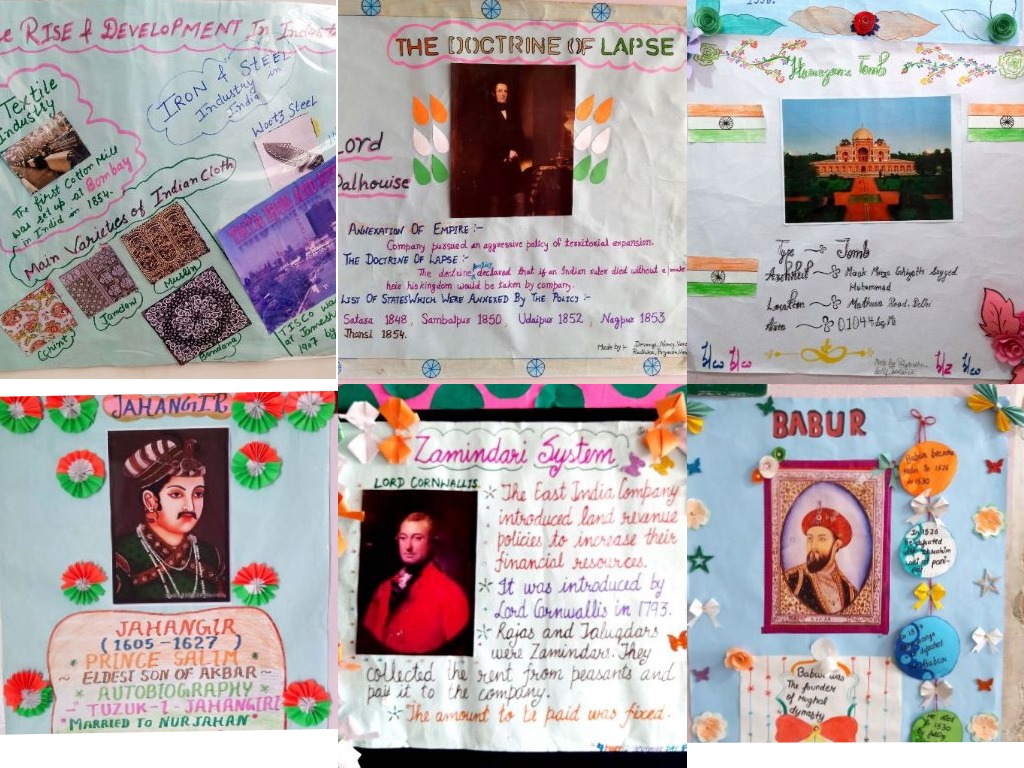 e RISE & DEVELOPMENT In Indust
Textile
Industry
The first Cotton Mill
was set up at Bombay
in India in 1854.
IRON & STEEL
Industry in
India
Wootz Steel
Main Varieties of Indian Cloth
Chint
Jamdani
Muslin
Bandana
TISCO wa
at Jamsh
1907 by
THE DOCTRINE OF LAPSE
Lord
Dalhouise
ANNEXATION OF EMPIRE :-
Company pursued an aggressive policy of territorial expansion.
THE DOCTRINE OF LAPSE :-
The doctrine policy declared that if an Indian ruler died without a male
heir his kingdom would be taken by company.
LIST OF STATES WHICH WERE ANNEXED BY THE POLICY :-
Satara 1848, Sambalpur 1850, Udaipur 1852, Nagpur 1853
Jhansi 1854.
Made by :-
Humayun's Tomb
Type → Tomb
Architect → Mirak Mirza Ghiyath Sayyed
Muhammad
Location → Mathura Road. Delhi
Area →
JAHANGIR
JAHANGIR
(1605-1627)
PRINCE SALIM
~ ELDEST SON OF AKBAR ~
* AUTOBIOGRAPHY *
- TUZUK-I-JAHANGIRI
*MARRIED TO NUR JAHAN*
Zamindari System
LORD CORNWALLIS
The East India Company
introduced land revenue
policies to increase their
financial resources.
It was introduced by
Lord Cornwallis in 1793.
Rajas and Taluqdars
were Zamindars. They
collected the rent from peasants and
paid it to the company.
The amount to be paid was fixed.
BABUR
Babur became
ruler in 1526
to 1530
In 1526
defeated
Ibrahim
Babur
Babur was
The founder
of Mughal
dynasty
1530